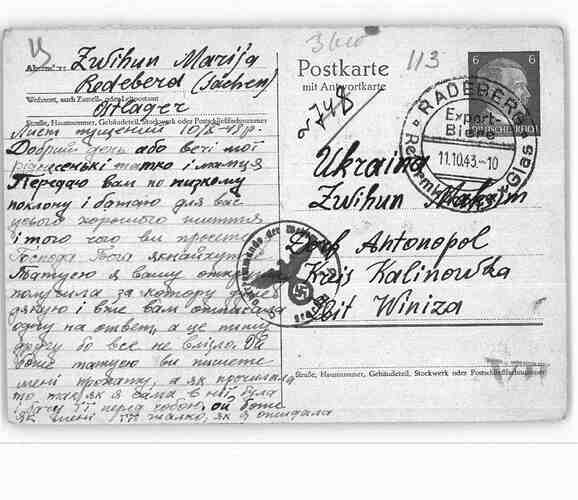 Zwihun Marija
Absender:
Radeberd (Sachen)
Wohnort, auch Zustell- oder Leitpostamt
Ostlager
Straße, Hausnummer, Gebäudeteil, Stockwerk oder Postschließfachnummer
Лист пущений 10/X-43р.
Добрий день або вечі мої
ріднесенькі татко і мамця
Передаю вам по низкому
поклону і бажаю для вас
цього хорошого життя
і того чого ви просите
Господа Бога
Татусю я вашу открит
получила за котору
дякую і вже вам отписала
одну на ответ, а це пишу
другу бо все не влізло. Ой
боже татусю ви пишете
мені про хату, а як прочитала
то так як я сама в ній була
і бачу її перед собою, ой боже
як мені її жалко, як я ожидала
360
113
Postkarte
mit Antwortkarte
6 6
DEUTSCHES REICH
RADEBERG
Export-
Biere
11.10.43.-10
Glas
Ukraina
Zwihun Maksim
Dorf Antonopol
Kreis Kalinowka
Winiza
Oberkommando der Wehrmacht
Straße, Hausnummer, Gebäudeteil, Stockwerk oder Postschließfachnummer